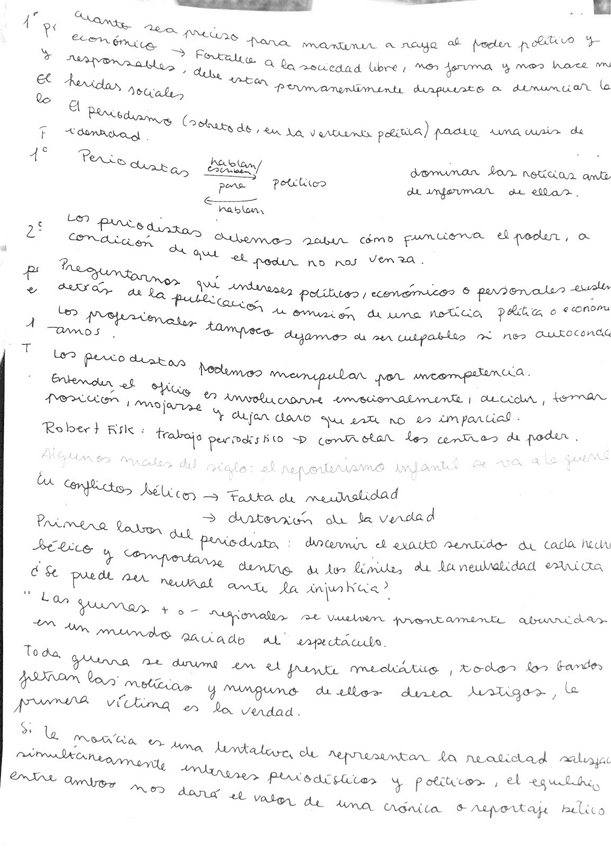 cuanto sea preciso para mantener a raya al poder político y
1º pr económico → Fortalece a la sociedad libre, nos forma y nos hace m
y responsables, debe estar permanentemente dispuesto a denunciar la
El heridas sociales
lo El periodismo (sobretodo, en la vertiente política) padece una crisis de
F identidad.
1º Periodistas hablan/escriben para políticos hablan dominar las noticias ante
de informar de ellas.
2º Los periodistas debemos saber cómo funciona el poder, a
condición de que el poder no nos venza.
pr Preguntarnos qué intereses políticos, económicos o personales existen
e detrás de la publicación u omisión de una noticia política o económi
1 Los profesionales tampoco dejamos de ser culpables si nos autocondic
amos.
T Los periodistas podemos manipular por incompetencia.
Entender el oficio es involucrarse emocionalmente, decidir, tomar
posición, mojarse y dejar claro que este no es imparcial.
Robert Fisk: trabajo periodístico → controlar los centros de poder.
Algunos males del siglo: el reporterismo infantil se va a la guerra
En conflictos bélicos → Falta de neutralidad
→ distorsión de la verdad
Primera labor del periodista: discernir el exacto sentido de cada hecho
bélico y comportarse dentro de los límites de la neutralidad estricta
¿Se puede ser neutral ante la injusticia?
"Las guerras + o - regionales se vuelven prontamente aburridas
en un mundo saciado al espectáculo.
Toda guerra se dirime en el frente mediático, todos los bandos
filtran las noticias y ninguno de ellos desea testigos, la
primera víctima es la verdad.
Si la noticia es una tentativa de representar la realidad satisfac
simultáneamente intereses periodísticos y políticos, el equilibrio
entre ambos nos dará el valor de una crónica o reportaje bélico